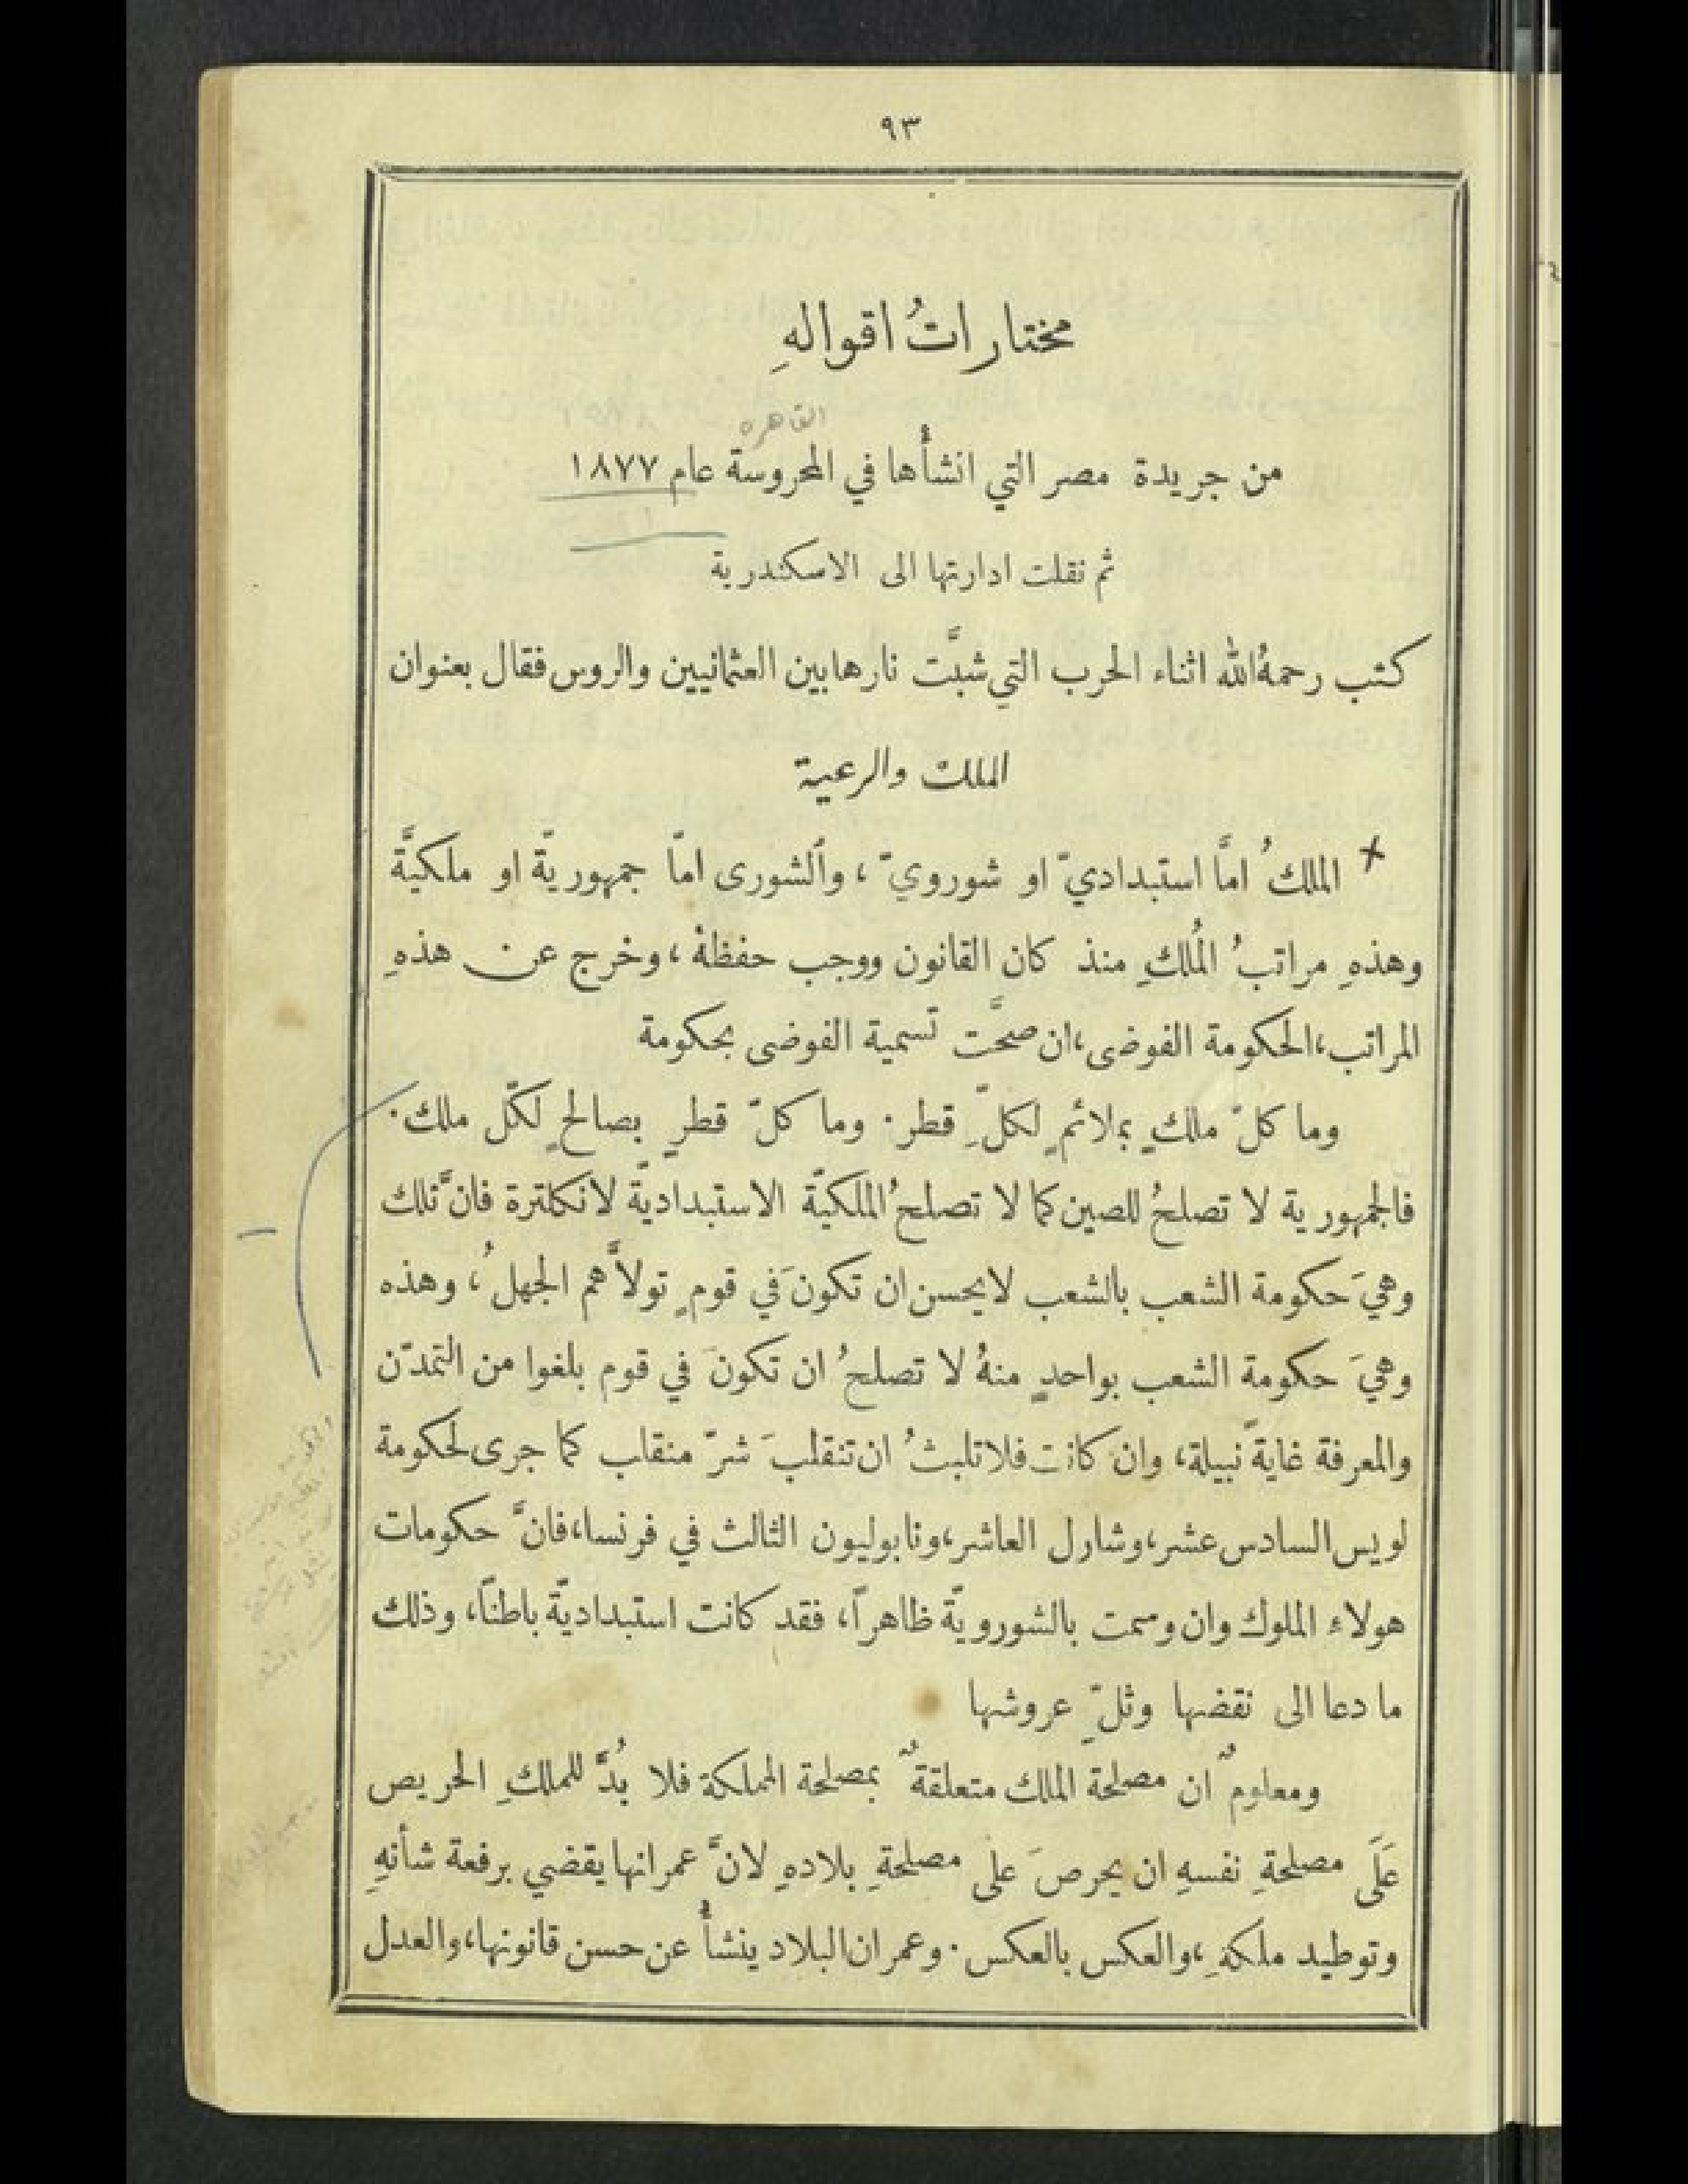 ٩٣
مختاراتُ اقوالهِ
القاهره
من جريدة مصر التي انشأها في المحروسة عام ١٨٧٧
ثم نقلت ادارتها الى الاسكندرية
كتب رحمهُ الله اثناء الحرب التي شبَّت نارها بين العثمانيين والروس فقال بعنوان
الملك والرعية
الملكُ امَّا استبداديّ او شورويّ، وألشورى امّا جمهوريّة او ملكيَّة
وهذهِ مراتبُ المُلكِ منذ كان القانون ووجب حفظهُ، وخرج عن هذهِ
المراتب، الحكومة الفوضى، ان صحَّت تسمية الفوضى بحكومة
وما كلّ ملكٍ بملائمٍ لكلِّ قطر. وما كلّ قطرٍ بصالحٍ لكلّ ملك.
فالجمهورية لا تصلحُ للصين كما لا تصلحُ الملكيّة الاستبداديّة لانكلترة فانَّ تلك
وهيَ حكومة الشعب بالشعب لا يحسن ان تكونَ في قومٍ تولاَّهم الجهلُ، وهذه
وهيَ حكومة الشعب بواحدٍ منهُ لا تصلحُ ان تكونَ في قوم بلغوا من التمدّن
والمعرفة غايةً نبيلة، وان كانت فلا تلبثُ ان تنقلبَ شرّ منقلب كما جرى لحكومة
لويس السادس عشر، وشارل العاشر، ونابوليون الثالث في فرنسا، فانَّ حكومات
هولاء الملوك وان وسمت بالشورويّة ظاهراً، فقد كانت استبداديّة باطناً، وذلك
ما دعا الى نقضها وثلِّ عروشها
ومعلومٌ ان مصلحة الملك متعلقةٌ بمصلحة المملكة فلا بُدَّ للملكِ الحريص
عَلَى مصلحةِ نفسهِ ان يحرصَ على مصلحةِ بلادهِ لانَّ عمرانها يقضي برفعة شأنهِ
وتوطيد ملكهِ، والعكس بالعكس. وعمران البلاد ينشأُ عن حسن قانونها، والعدل